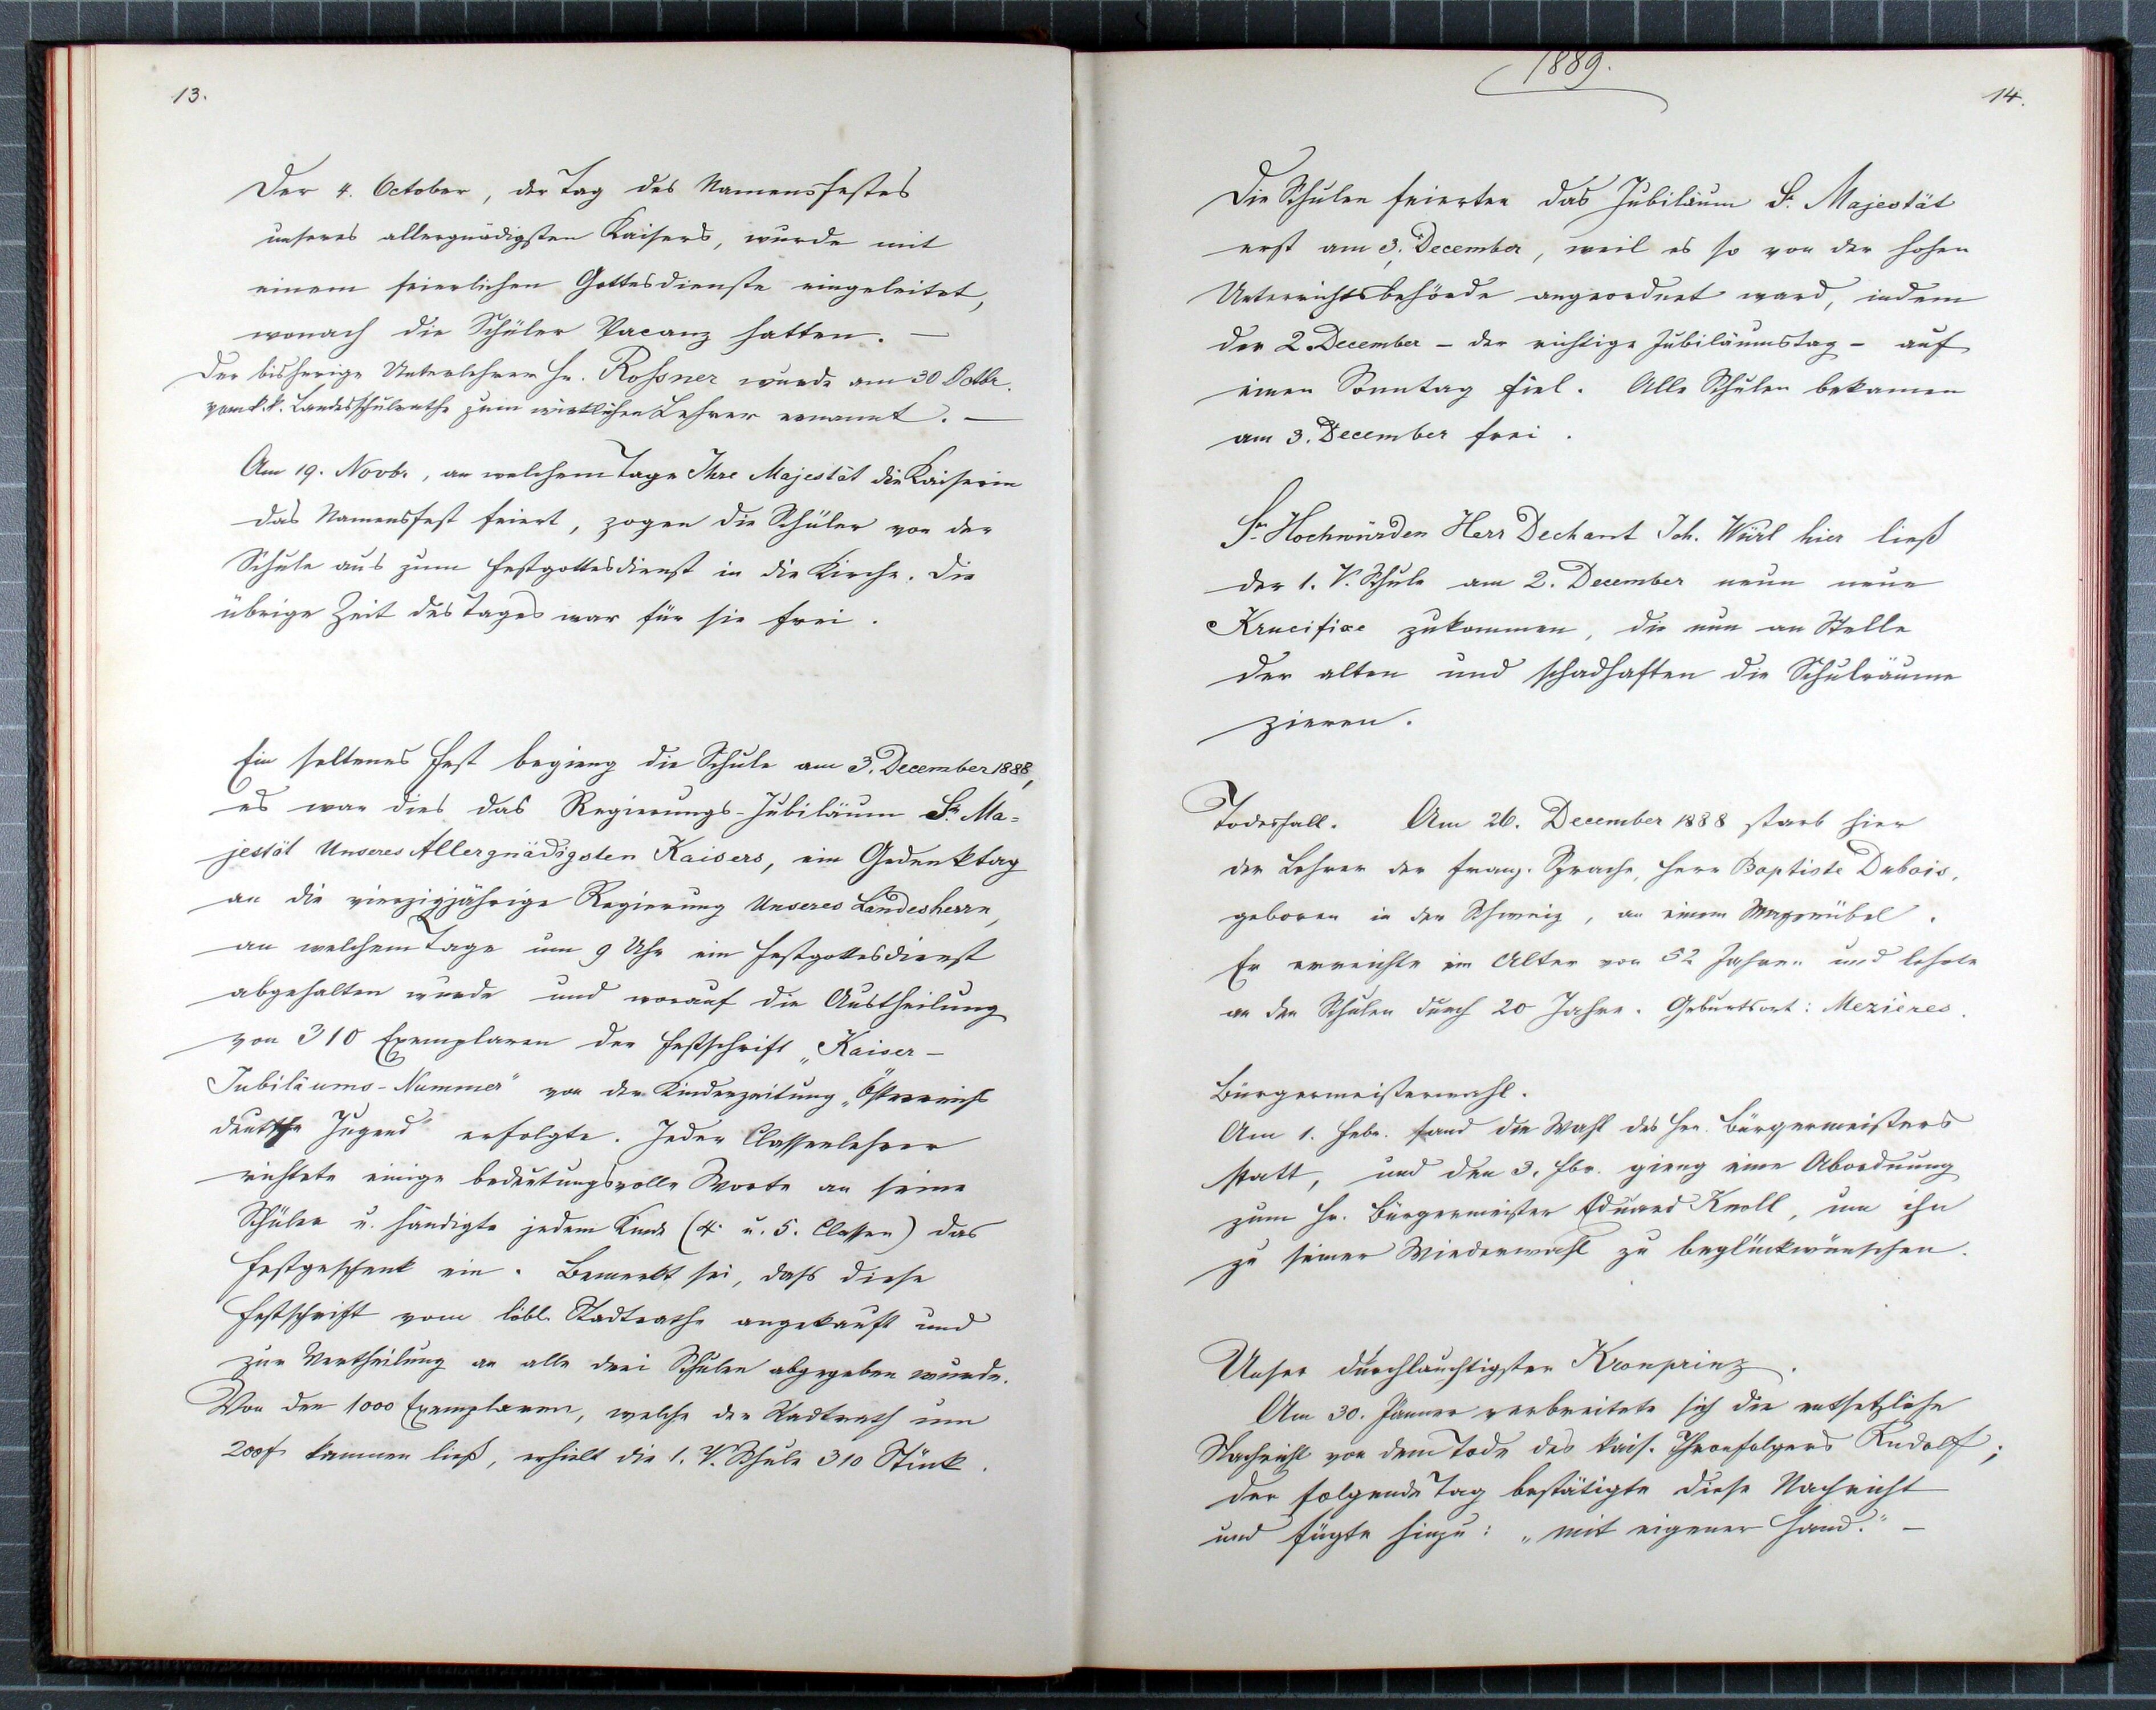 13.
Der 4. October, der Tag des Namensfestes
unseres allergnädigsten Kaisers, wurde mit
einem feierlichen Gottesdienste eingeleitet,
wonach die Schüler Vacanz hatten. —
Der bisherige Unterlehrer Hr. Roßner wurde am 30 Octbr.
vom k. k. Landesschulrathe zum wirklichen Lehrer ernannt. —
Am 19. Novbr, an welchem Tage Ihre Majestät die Kaiserin
das Namensfest feiert, zogen die Schüler von der
Schule aus zum Festgottesdienst in die Kirche. Die
übrige Zeit des Tages war für sie frei.
Ein seltenes Fest begieng die Schule am 3. December 1888,
es war dies das Regierungs-Jubiläum Sr. Ma=
jestät Unseres Allergnädigsten Kaisers, ein Gedenktag
an die vierzigjährige Regierung Unseres Landesherrn,
an welchem Tage um 9 Uhr ein Festgottesdienst
abgehalten wurde und worauf die Austheilung
von 310 Exemplaren der Festschrift „Kaiser-
Jubiläums-Nummer" von der Kinderzeitung „Österreichs
deutsche Jugend" erfolgte. Jeder Classenlehrer
richtete einige bedeutungsvolle Worte an seine
Schüler u. händigte jedem Kinde (4. u. 5. Classen) das
Festgeschenk ein. Bemerkt sei, dass diese
Festschrift vom löbl. Stadtrathe angekauft und
zur Vertheilung an alle drei Schulen abgegeben wurde.
Von den 1000 Exemplaren, welche der Stadtrath um
200f kommen ließ, erhielt die 1. V. Schule 310 Stück.
1889.
14.
Die Schulen feierten das Jubiläum Sr. Majestät
erst am 3. December, weil es so von der hohen
Unterrichtsbehörde angeordnet ward, indem
der 2. December – der richtige Jubiläumstag – auf
einen Sonntag fiel. Alle Schulen bekamen
am 3. December frei.
Sr. Hochwürden Herr Dechant Joh. Würl hier ließ
der 1. V. Schule am 2. December neun neue
Krucifixe zukommen, die nun an Stelle
der alten und schadhaften die Schulräume
zieren.
Todesfall. Am 26. December 1888 starb hier
der Lehrer der franz. Sprache, Herr Baptiste Dubois,
geboren in der Schweiz, an einem Magenübel.
Er erreichte ein Alter von 52 Jahren und lehrte
an den Schulen durch 20 Jahre. Geburtsort: Mezières.
Bürgermeisterwahl.
Am 1. Febr. fand die Wahl des Hrn. Bürgermeisters
statt, und den 3. Fbr. gieng eine Abordnung
zum Hr. Bürgermeister Eduard Knoll, um ihn
zu seiner Wiederwahl zu beglückwünschen.
Unser durchlauchtigster Kronprinz.
Am 30. Jänner verbreitete sich die entsetzliche
Nachricht von dem Tode des kais. Thronfolgers Rudolf;
der folgende Tag bestätigte diese Nachricht
und fügte hinzu: „mit eigener Hand." –